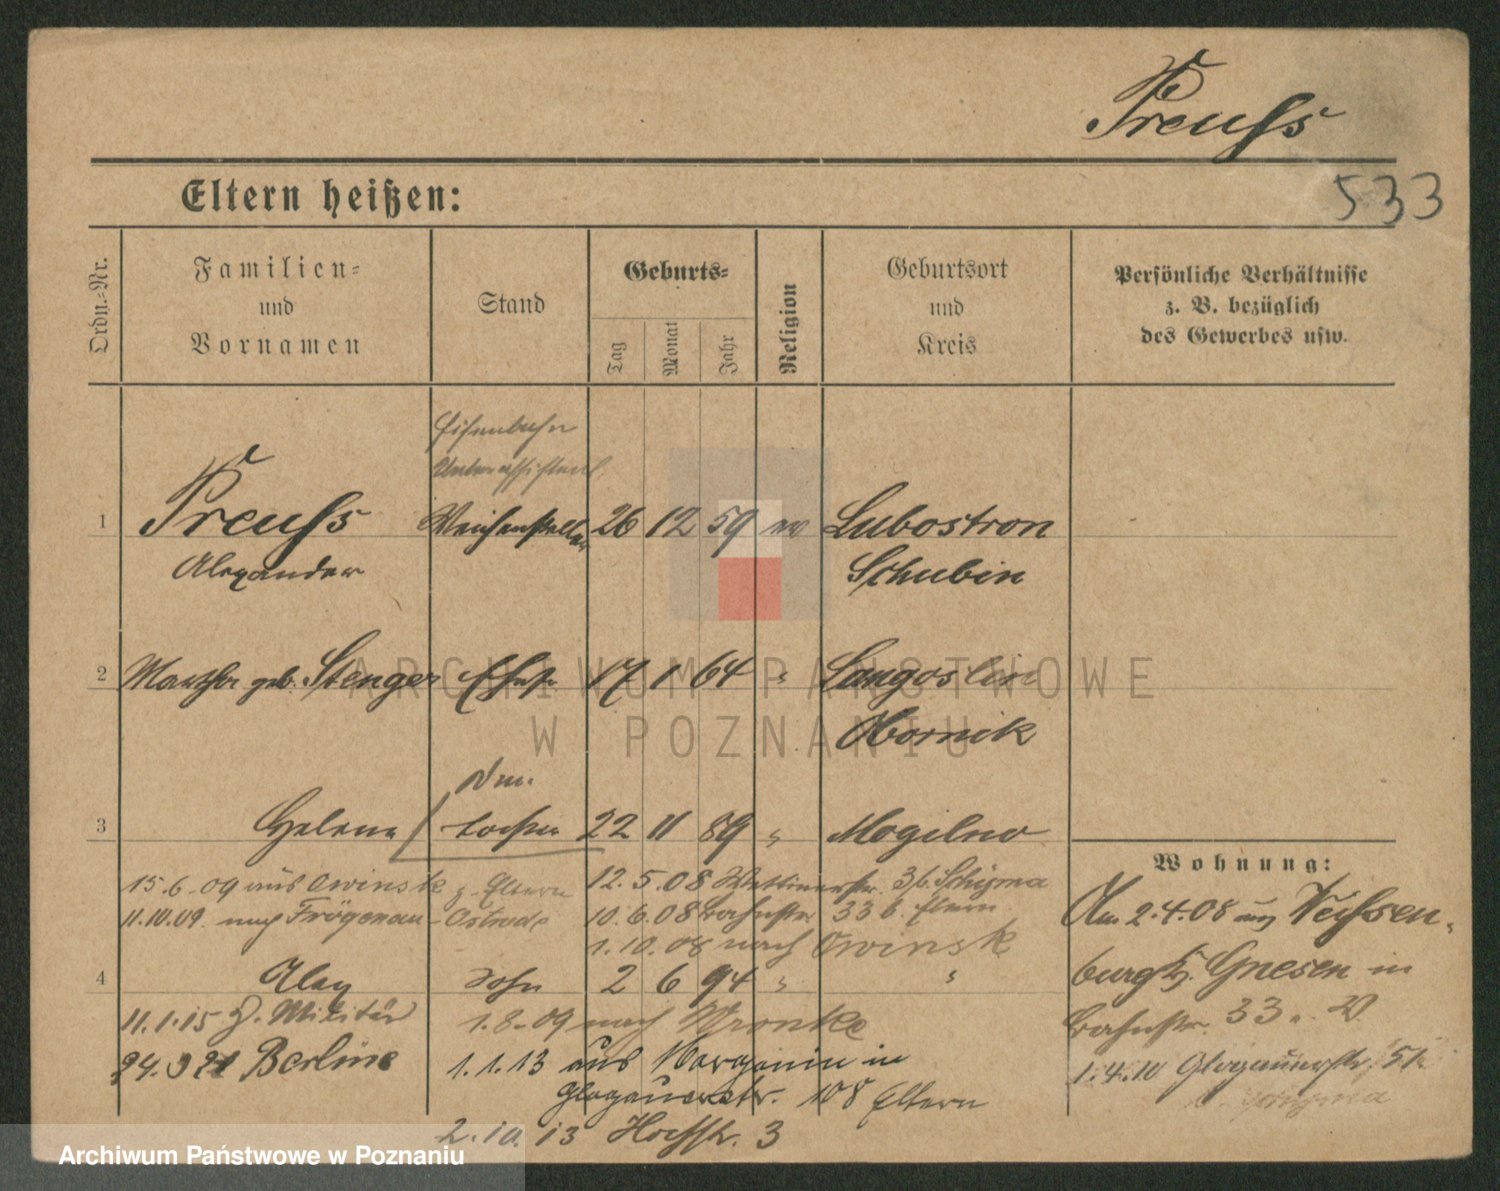 Preuſs
533
Eltern heißen:
Ordn.-Nr.
Familien-
und
Vornamen
Stand
Geburts-
Tag
Monat
Jahr
Religion
Geburtsort
und
Kreis
Persönliche Verhältnisse
z. B. bezüglich
des Gewerbes usw.
Eisenbahn
Unterassistent
1 Preuſs Weichensteller 26 12 59 ev Lubostron
Alexander Schubin
2 Martha geb. Stenger Ehefr 17 1 64 " Langoslin
Obornik
3 Helene Tochter 22 11 89 " Mogilno
Wohnung:
15.6.09 aus Owinsk z. Eltern
12.5.08 36.
11.10.09. nach Frögenau-Ostrode
10.6.08 Bahnstr 33 b. Eltern
1.10.08 nach Owinsk
Am 2.4.08 aus Weißen-
burg Gnesen in
Bahnstr. 33
4 Alex Sohn 2 6 94 " "
11.1.15 z. Militär
1.8.09 nach Wronke
24.9.21 Berline
1.1.13 aus Margonin in
Glogauerstr. 108 Eltern
1.4.10 Glogauerstr.
2.10.13 Hochstr. 3
ARCHIWUM PAŃSTWOWE
W POZNANIU
Archiwum Państwowe w Poznaniu